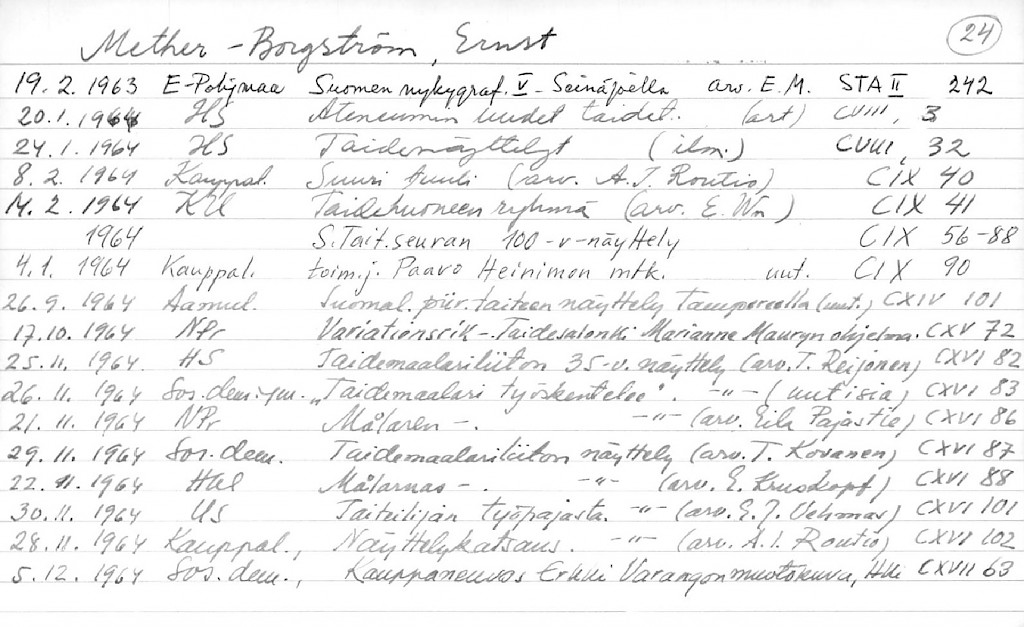 Mether-Borgström, Ernst 24
19.2.1963 E-Pohjmaa Suomen nykygraf. V - Seinäjoella arv. E.M. STA II 242
20.1.1964 HS Ateneumin uudet taidet.. (art) CVIII, 3
24.1.1964 HS Taidenäyttelyt (ilm.) CVIII, 32
8.2.1964 Kauppal. Suuri tuuli (arv. A.I. Routio) CIX 40
14.2.1964 KU Taidehuoneen ryhmä (arv. E. Wn) CIX 41
1964 S.Tait.seuran 100-v-näyttely CIX 56-88
4.1.1964 Kauppal. toim.j. Paavo Heinimon mtk. uut. CIX 90
26.9.1964 Aamul. Suomal. piir.taiteen näyttely Tampereella (uut.) CXIV 101
17.10.1964 NPr Variationsrik - Taidesalonki Marianne Mauryn ohjelma. CXV 72
25.11.1964 HS Taidemaalariliiton 35-v. näyttely (arv. T. Reijonen) CXVI 82
26.11.1964 Sos.dem. „Taidemaalari työskentelee". -"- (uutisia) CXVI 83
21.11.1964 NPr Målaren -. -"- (arv. Eila Pajastie) CXVI 86
29.11.1964 Sos.dem. Taidemaalariliiton näyttely (arv. T. Kovanen) CXVI 87
22.11.1964 Hbl Målarnas -. -"- (arv. E. Kruskopf) CXVI 88
30.11.1964 US Taiteilijan työpajasta. -"- (arv. E.J. Vehmas) CXVI 101
28.11.1964 Kauppal., Näyttelykatsaus. -"- (arv. A.I. Routio) CXVI 102
5.12.1964 Sos.dem., Kauppaneuvos Erkki Varangon muotokuva, Hki CXVII 63